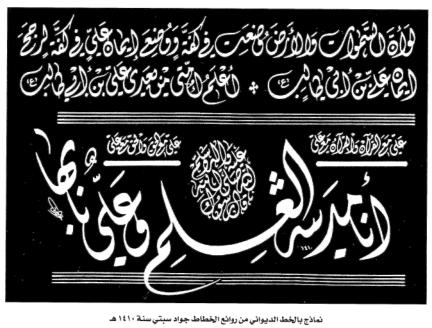 لو أن السموات والأرض وضعت في كفة ووضع إيمان علي في كفة لرجح
إيمان علي بن أبي طالب (ع) أعلم أمتي من بعدي علي بن أبي طالب (ع)
علي مع القرآن والقرآن مع علي
علي مع الحق والحق مع علي
أنا مدينة العلم وعلي بابها
١٤١٠
نماذج بالخط الديواني من روائع الخطاط جواد سبتي سنة ١٤١٠ هـ